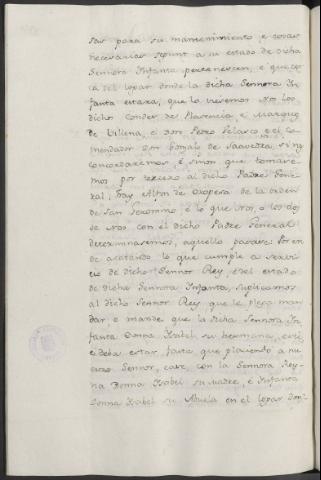 sas para su mantenimiento, e cosas
necesarias segunt a su estado de dicha
Sennora Infanta pertenescen, e que cer
ca del logar donde la dicha Sennora In
fanta estara, que lo veremos Nos los
dichos Condes de Plasencia e Marques
de Villena, e Don Pedro Velasco, e el Co
mendador Don Gonzalo de Saavedra, si nos
concordaremos, e sinon que tomare
mos por tercero al dicho Padre Gene
ral, Fray Alfon de Oropesa de la orden
de San Geronimo, e lo que Nos, o los dos
de Nos con el dicho Padre General
determinaremos, aquello pasare: Por en
de acatando lo que cumple a servi
cio de dicho Sennor Rey, e del estado
de dicha Sennora Infanta, suplicamos
al dicho Sennor Rey que le plega man
dar, e mande que la dicha Sennora In
fanta Donna Isabel su hermana, esté,
e deba estar, fasta que placiendo a nu
estro Sennor, case, con la Sennora Rey
na Donna Isabel su Madre, e Infanta
Donna Isabel su Abuela en el logar don